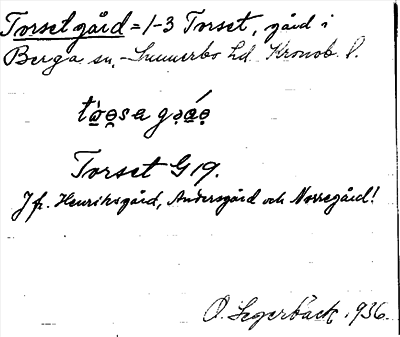 Torset gård = 1-3 Torset, gård i
Berga sn. - Sunnerbo hd. Kronob. l.
Torset G 19.
Jfr. Henriksgård, Andersgård och Norregård!
O. Segerbäck, 1936.